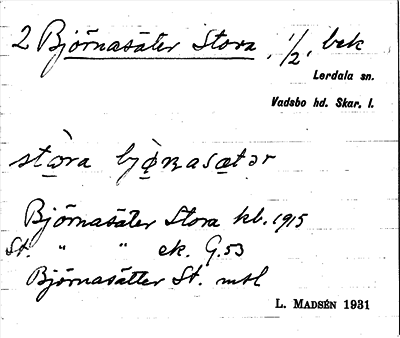 2 Björnasäter Stora, 1/2, bek
Lerdala sn.
Vadsbo hd. Skar. l.
Björnasäter Stora kb. 1915
St. " " ek. G.53
Björnasätter St. mtl
L. MADSÉN 1931